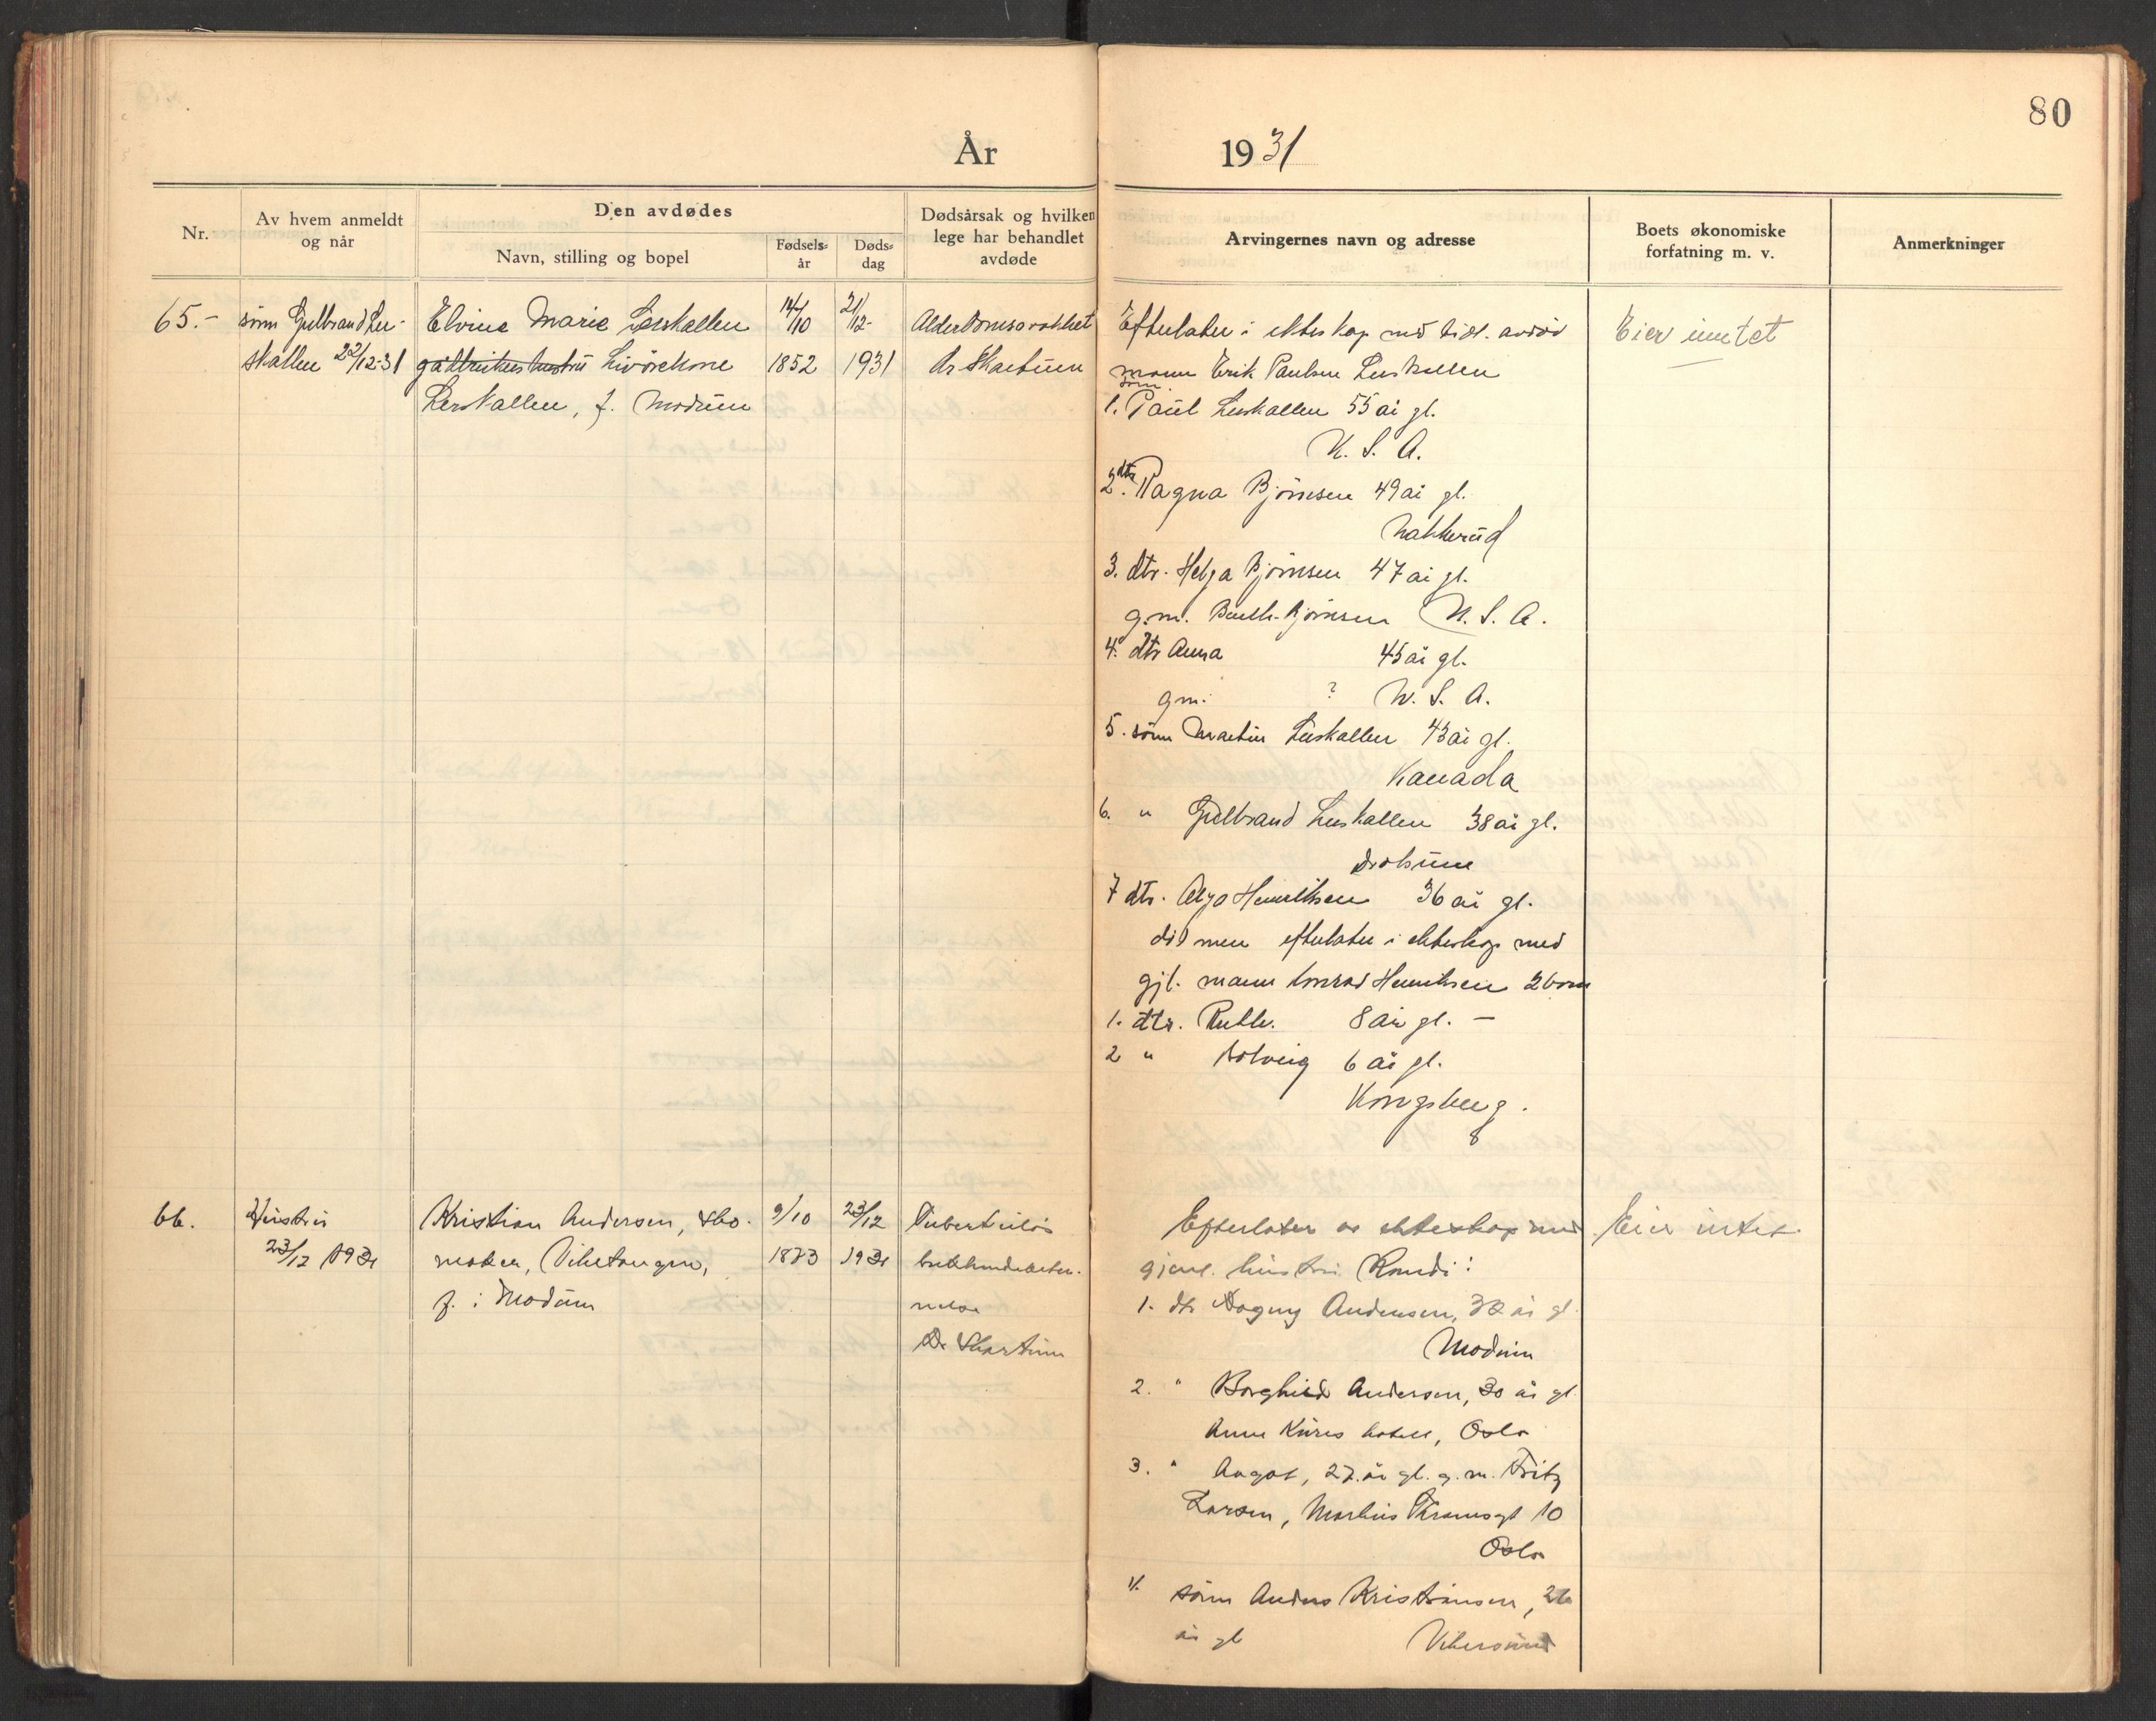 80
År 1931
Nr.
Av hvem anmeldt
og når
Den avdødes
Navn, stilling og bopel
Fødsels-
år
Døds-
dag
Dødsårsak og hvilken
lege har behandlet
avdøde
Arvingernes navn og adresse
Boets økonomiske
forfatning m. v.
Anmerkninger
65.-
sønn Gulbrand Ler-
skallen 22/12-31
Elvine Marie Lerskallen
gårdbrukerhustru Livørekone
Lerskallen, f. Modum
14/10
1852
21/12-
1931
Alderdomssvakhet
dr Skartum
Efterlater i ekteskap med tidl. avdød
mann Erik Paulsen Lerskallen
1. sønn Paul Lerskallen 55 år gl.
U. S. A.
2. dtr. Ragna Bjørnsen 49 år gl.
Nakkerud
3. dtr. Helga Bjørnsen 47 år gl.
g.m. Bjørnsen U. S. A.
4. dtr Anna 45 år gl.
gm. ? U. S. A.
5. sønn Martin Lerskallen 43 år gl.
Kanada
6. " Gulbrand Lerskallen 38 år gl.
7 dtr. Henriksen 36 år gl.
død men efterlater i ekteskap med
gjl. mann Konrad Henriksen 2 barn
1. dtr. Ruth. 8 år gl. -
2 " Solveig 6 år gl.
Kongsberg.
Eier intet
66.
Hustru
23/12 1931
Kristian Andersen, sko-
maker, Viketangen,
f. i Modum
9/10
1873
23/12
1931
Tuberkuløs
nelse
Dr Skartum
Efterlater av ekteskap med
gjenl. hustru Randi:
1. dtr Dagny Andersen, 32 år gl.
Modum
2. " Borghild Andersen, 30 år gl.
Anne Kures hotell, Oslo
3. " Aagot, 27 år gl. g. m. Fritz
Larsen, Markus Thranesgt 10
Oslo
4. sønn Anders Kristiansen, 26
år gl Vikersund
Eier intet.